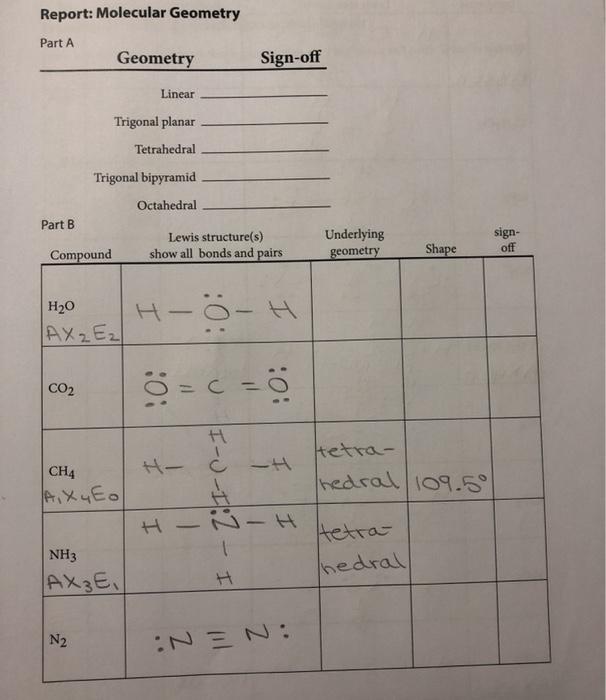 Report: Molecular Geometry
Part A
Geometry Sign-off
Linear
Trigonal planar
Tetrahedral
Trigonal bipyramid
Octahedral
Part B
Compound Lewis structure(s) show all bonds and pairs Underlying geometry Shape sign-off
H₂O
AX₂E₂
H — Ö — H
CO₂
Ö = C = Ö
H
|
H — C — H
|
H
CH₄
A₁X₄E₀
tetra-
hedral 109.5°
H — N̈ — H
|
H
NH₃
AX₃E₁
tetra-
hedral
N₂
:N ≡ N: